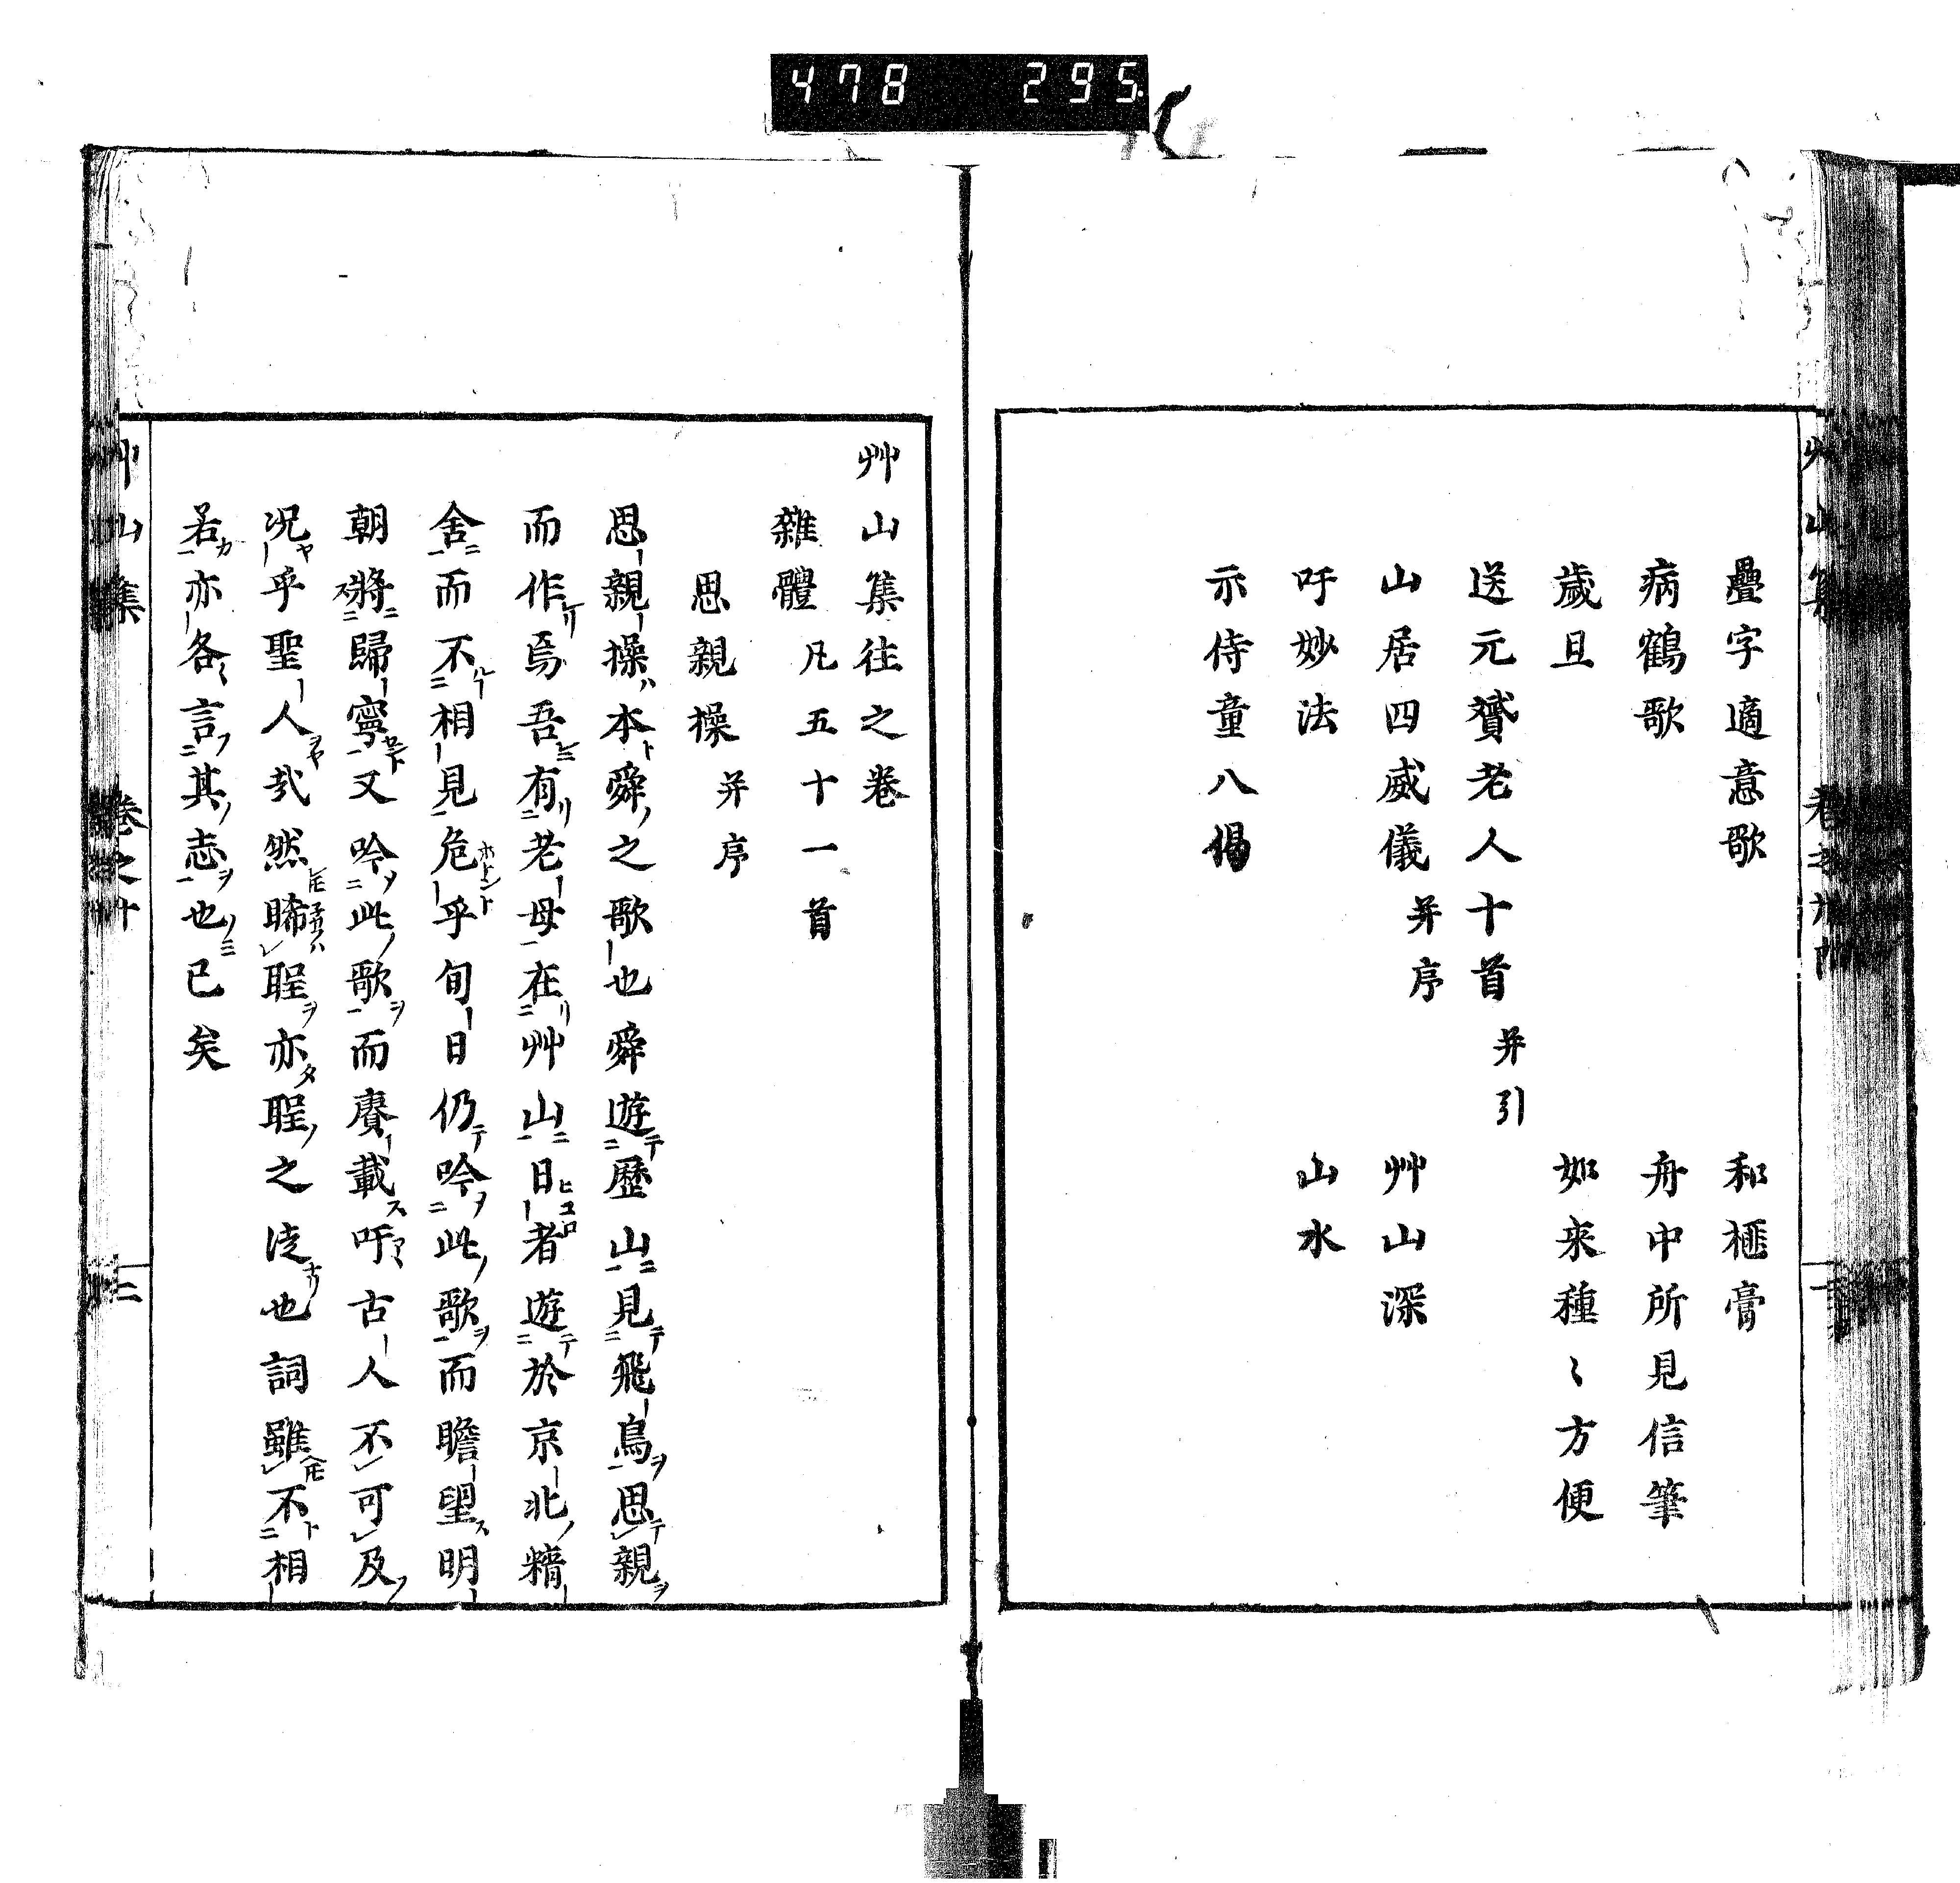 478 295
疊字適意歌　和榧膏
病鶴歌　舟中所見信筆
歲旦　如來種〻方便
送元贇老人十首 并引
山居四威儀 并序　艸山深
吁妙法　山水
示侍童八偈
艸山集往之卷
雜體 凡五十一首
思親操 并序
思親操本舜之歌也舜遊歷山見飛鳥思親
而作焉吾有老母在艸山日者遊於京北精
舍而不相見危乎旬日仍吟此歌而瞻望明
朝將歸寧又吟此歌而賡載吁古人不可及
况乎聖人哉然睎聖亦聖之徒也詞雖不相
若亦各言其志也已矣
艸山集　卷之十　二